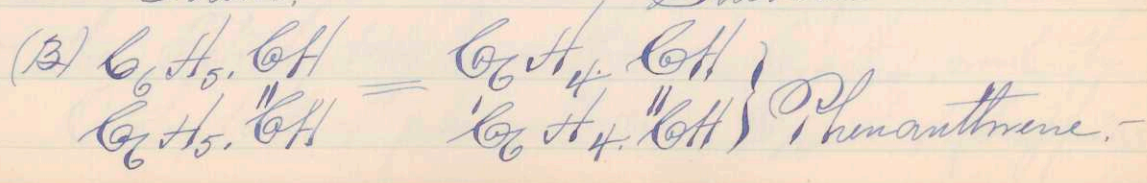 (3) C6H5.CH = C6H4.CH }
C6H5.CH C6H4.CH } Phenanthrene.-